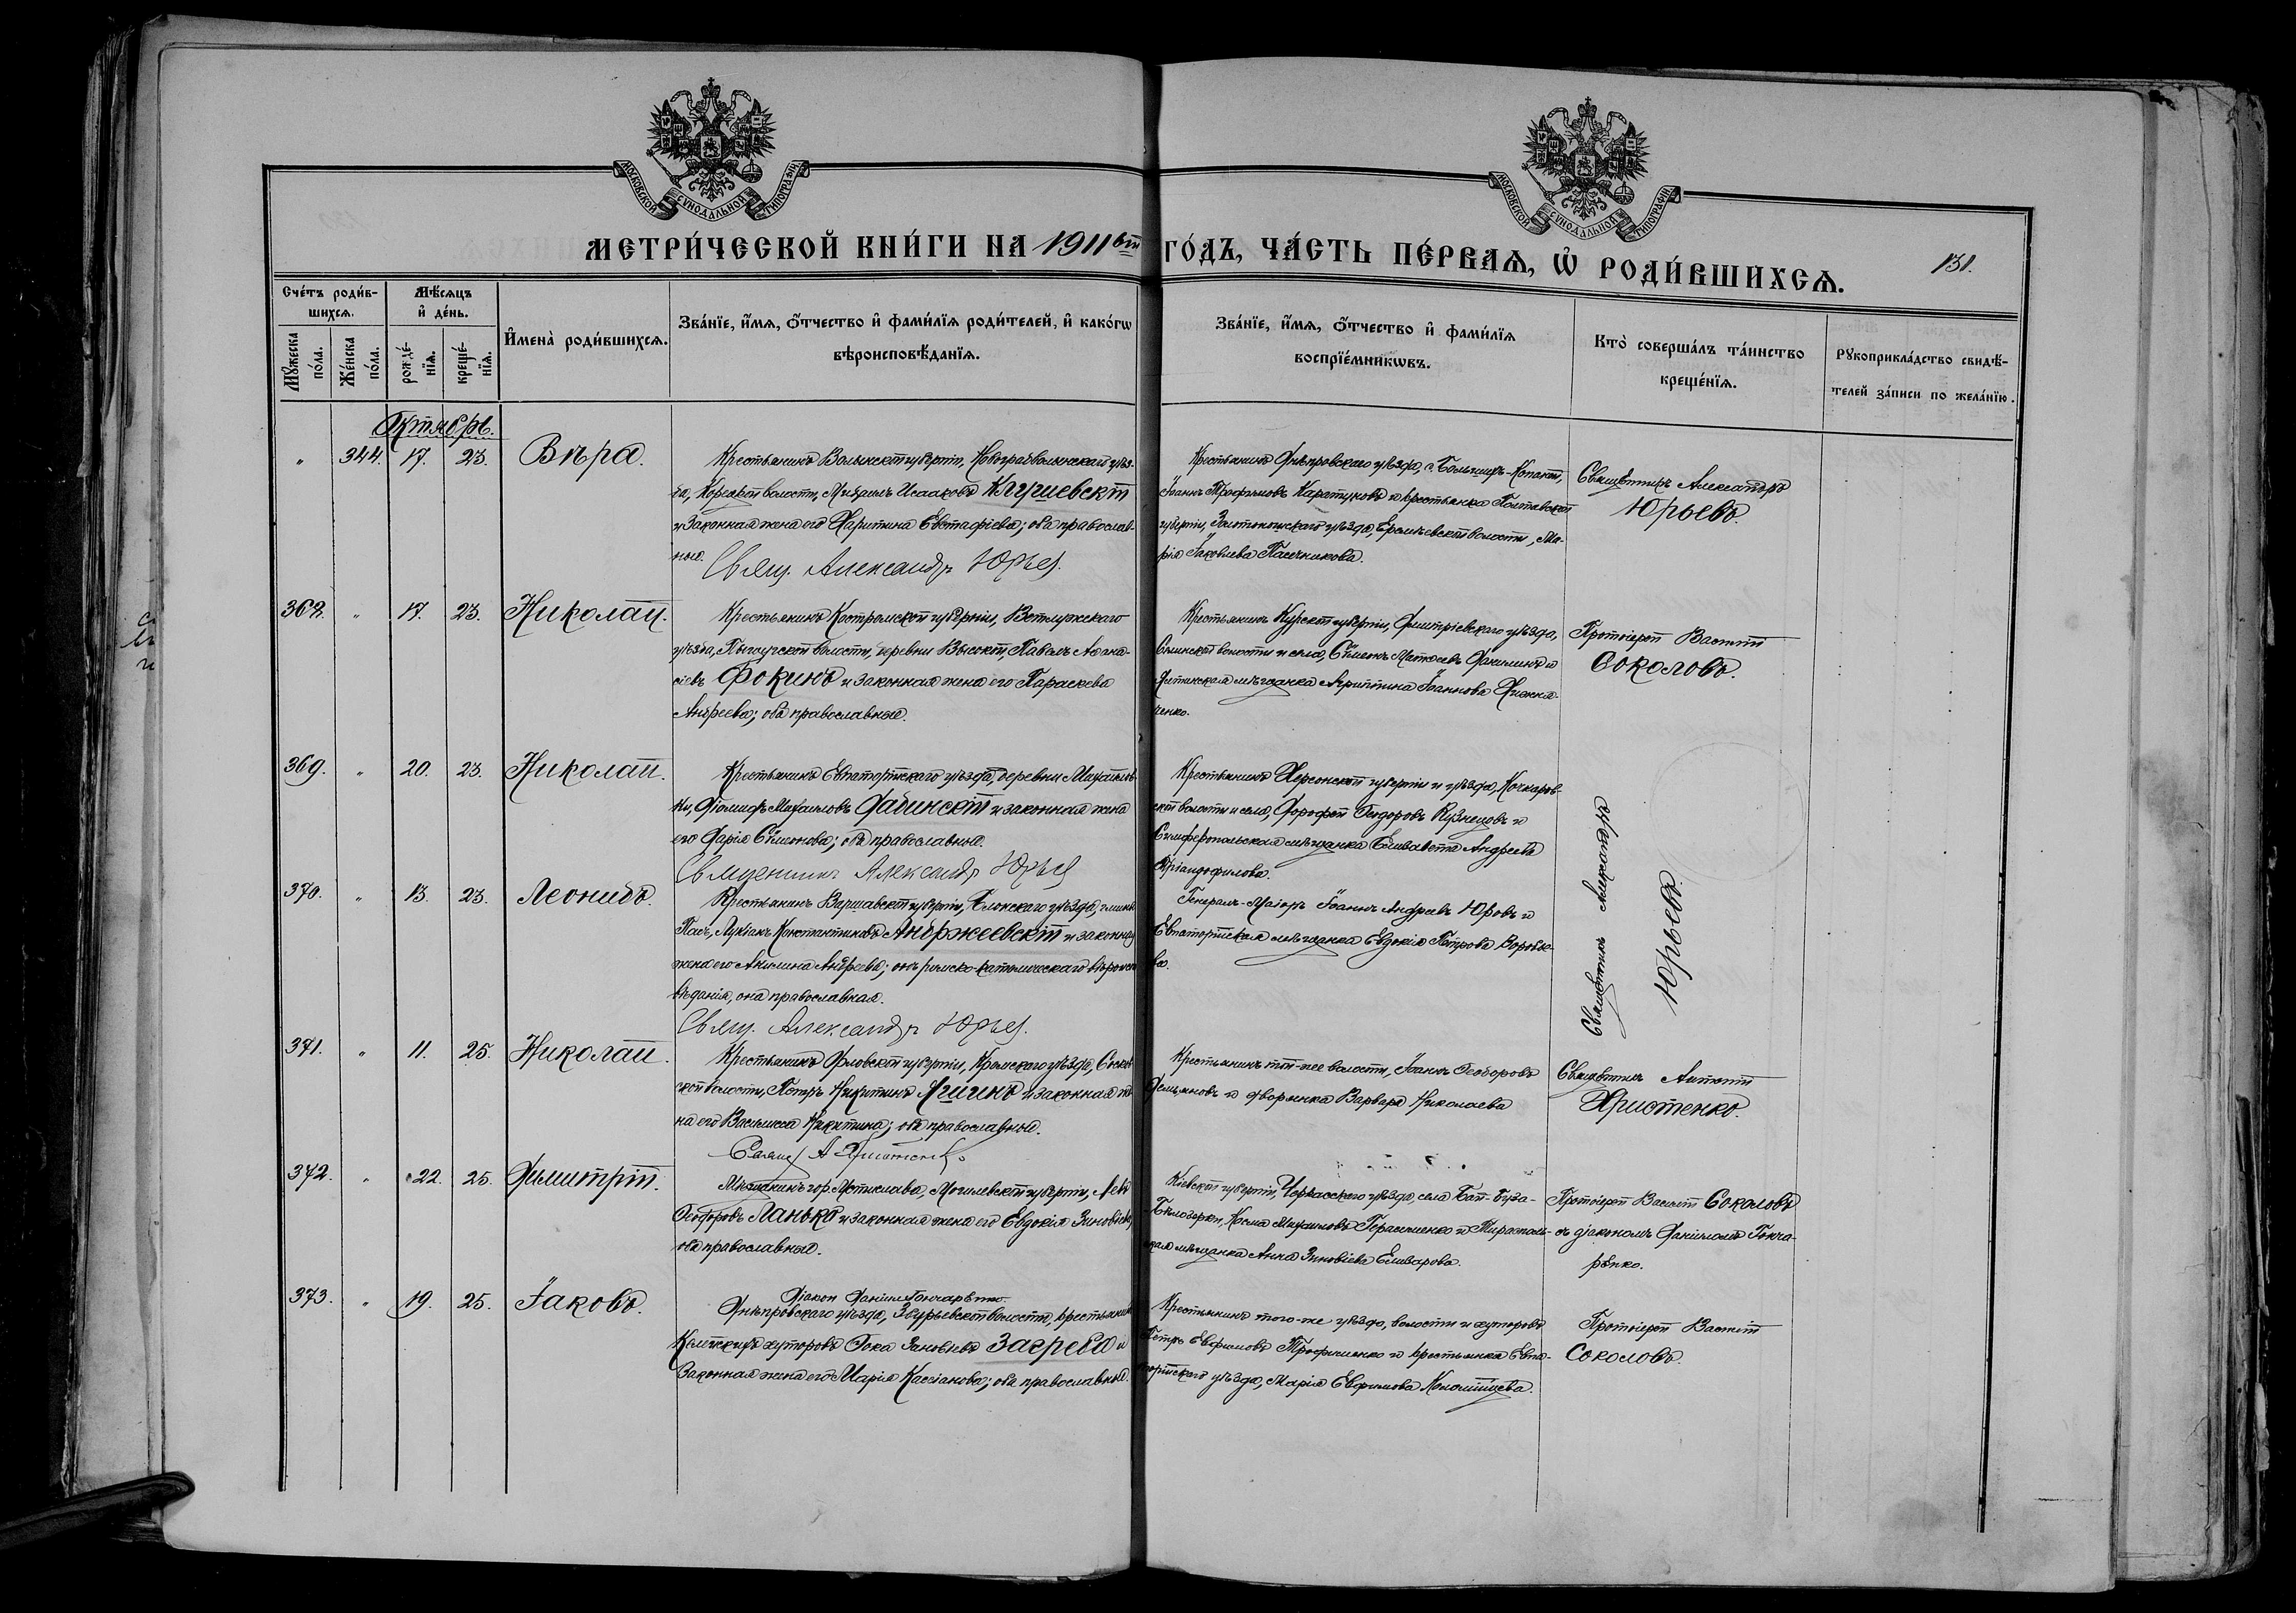 МОСКОВСКОЙ СѴНОДАЛЬНОЙ ТИПОГРАФІИ
МОСКОВСКОЙ СѴНОДАЛЬНОЙ ТИПОГРАФІИ
МЕТРИ́ЧЕСКОЙ КНИ́ГИ НА 1911ый ГО́ДЪ, ЧА́СТЬ ПЕ́РВАѦ, Ѡ҆ РОДИ́ВШИХСѦ.
131.
Сче́тъ роди́в-
шихсѧ.
Мꙋ́жеска по́ла.
Же́нска по́ла.
Мѣ́сѧцъ
и҆ де́нь.
рожде́-нїѧ.
креще́-нїѧ.
И҆мена̀ роди́вшихсѧ.
Зва́нїе, и҆́мѧ, ѻ҆́тчество и҆ фами́лїѧ роди́телей, и҆ како́гѡ
вѣроисповѣ́данїѧ.
Зва́нїе, и҆́мѧ, ѻ҆́тчество и҆ фами́лїѧ
воспрїе́мникѡвъ.
Кто̀ соверша́лъ та́инство
креще́нїѧ.
Рꙋкоприкла́дство свидѣ́-
телей за́писи по жела́нїю.
Октябрь.
" 344. 17. 23. Вѣра.
Крестьянинъ Волынской губерніи, Новоградволынскаго уѣз-
да, волости, Михаилъ Исааковъ
и законная жена его Харитина Евстафіева; оба православ-
ные.
Свящ. Александръ Юрьев.
Крестьянинъ Днѣпровскаго уѣзда, с. Большихъ-Копаней,
Іоаннъ Трофимовъ Каратуновъ и крестьянка Полтавской
губерніи, Золотоношскаго уѣзда, волости, Ма-
рія Іаковлева Пасечникова.
Священникъ Александръ
Юрьевъ.
368. " 17. 23. Николай.
Крестьянинъ Костромской губерніи, Ветлужскаго
уѣзда, волости, деревни Высокой, Павелъ Аѳана-
сіевъ Фокинъ и законная жена его Параскева
Андреева; оба православные.
Крестьянинъ Курской губерніи, Дмитріевскаго уѣзда,
волости и села, Сѵмеонъ Матѳеевъ и
Ялтинская мѣщанка Агриппина Іоаннова
ченко.
Протоіерей Василій
Соколовъ.
369. " 20. 23. Николай.
Крестьянинъ Евпаторійскаго уѣзда, деревни Михайлов-
ки, Діомидъ Михаиловъ Дабинскій и законная жена
его Дарія Сѵмеонова; оба православные.
Священникъ Александръ Юрьев
Крестьянинъ Херсонской губерніи и уѣзда, Качкаров-
ской волости и села, Дорофей Ѳеодоровъ Кузнецовъ и
Симферопольская мѣщанка Елисавета Андреева
Тріандофилова.
Священникъ Александръ
Юрьевъ.
370. " 13. 23. Леонидъ.
Крестьянинъ Варшавской губерніи, Блонскаго уѣзда, гмины
Пасъ, Лукіанъ Константиновъ Андржеевскій и законная
жена его Акилина Андреева; онъ римско-католическаго вѣроиспо-
вѣданія, она православная.
Свящ. Александръ Юрьев.
Генералъ-Маіоръ Іоаннъ Андреевъ Юровъ и
Евпаторійская мѣщанка Евдокія Петрова Воровье-
ва.
371. " 11. 25. Николай.
Крестьянинъ Орловской губерніи, Кромскаго уѣзда,
ской волости, Петръ Никитинъ Яшинъ и законная же-
на его Василисса Никитина; оба православные.
Свящ А Христенко
Крестьянинъ той-же волости, Іоаннъ Ѳеодоровъ
Демьяновъ и дворянка Варвара Николаева
Священникъ Антоній
Христенко.
372. " 22. 25. Димитрій.
Мѣщанинъ гор. Мстислава, Могилевской губерніи, Левъ
Ѳеодоровъ Ланько и законная жена его Евдокія Зиновіева;
оба православные.
Діакон Даніил Гончаренко.
Кіевской губерніи, Черкасскаго уѣзда, села
Бѣлозерки, Косма Михаиловъ Герасименко и Тирасполь-
ская мѣщанка Анна Зиновіева Елизарова.
Протоіерей Василій Соколовъ
съ діакономъ Даніиломъ Гонча-
ренко.
373. " 19. 25. Іаковъ.
Днѣпровскаго уѣзда, Збурьевской волости, крестьянинъ
хуторовъ Ѳока Зиновьевъ Загреба и
законная жена его Марія Кассіанова; оба православные.
Крестьянинъ того-же уѣзда, волости и хуторовъ
Петръ Евфимовъ Трофименко и крестьянка Евпа-
торійскаго уѣзда, Марія Евфимова Коломійцева.
Протоіерей Василій
Соколовъ.